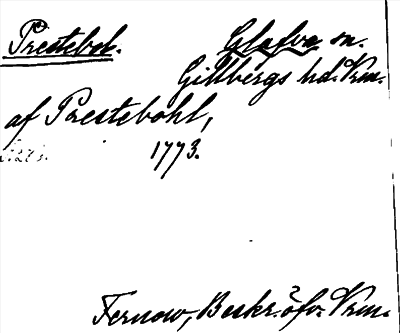 Prestebol. Glafva sn.
Gillbergs hd. Vrm.
af Prestebohl,
1773.
Fernow, Beskr. öfv. Vrm.